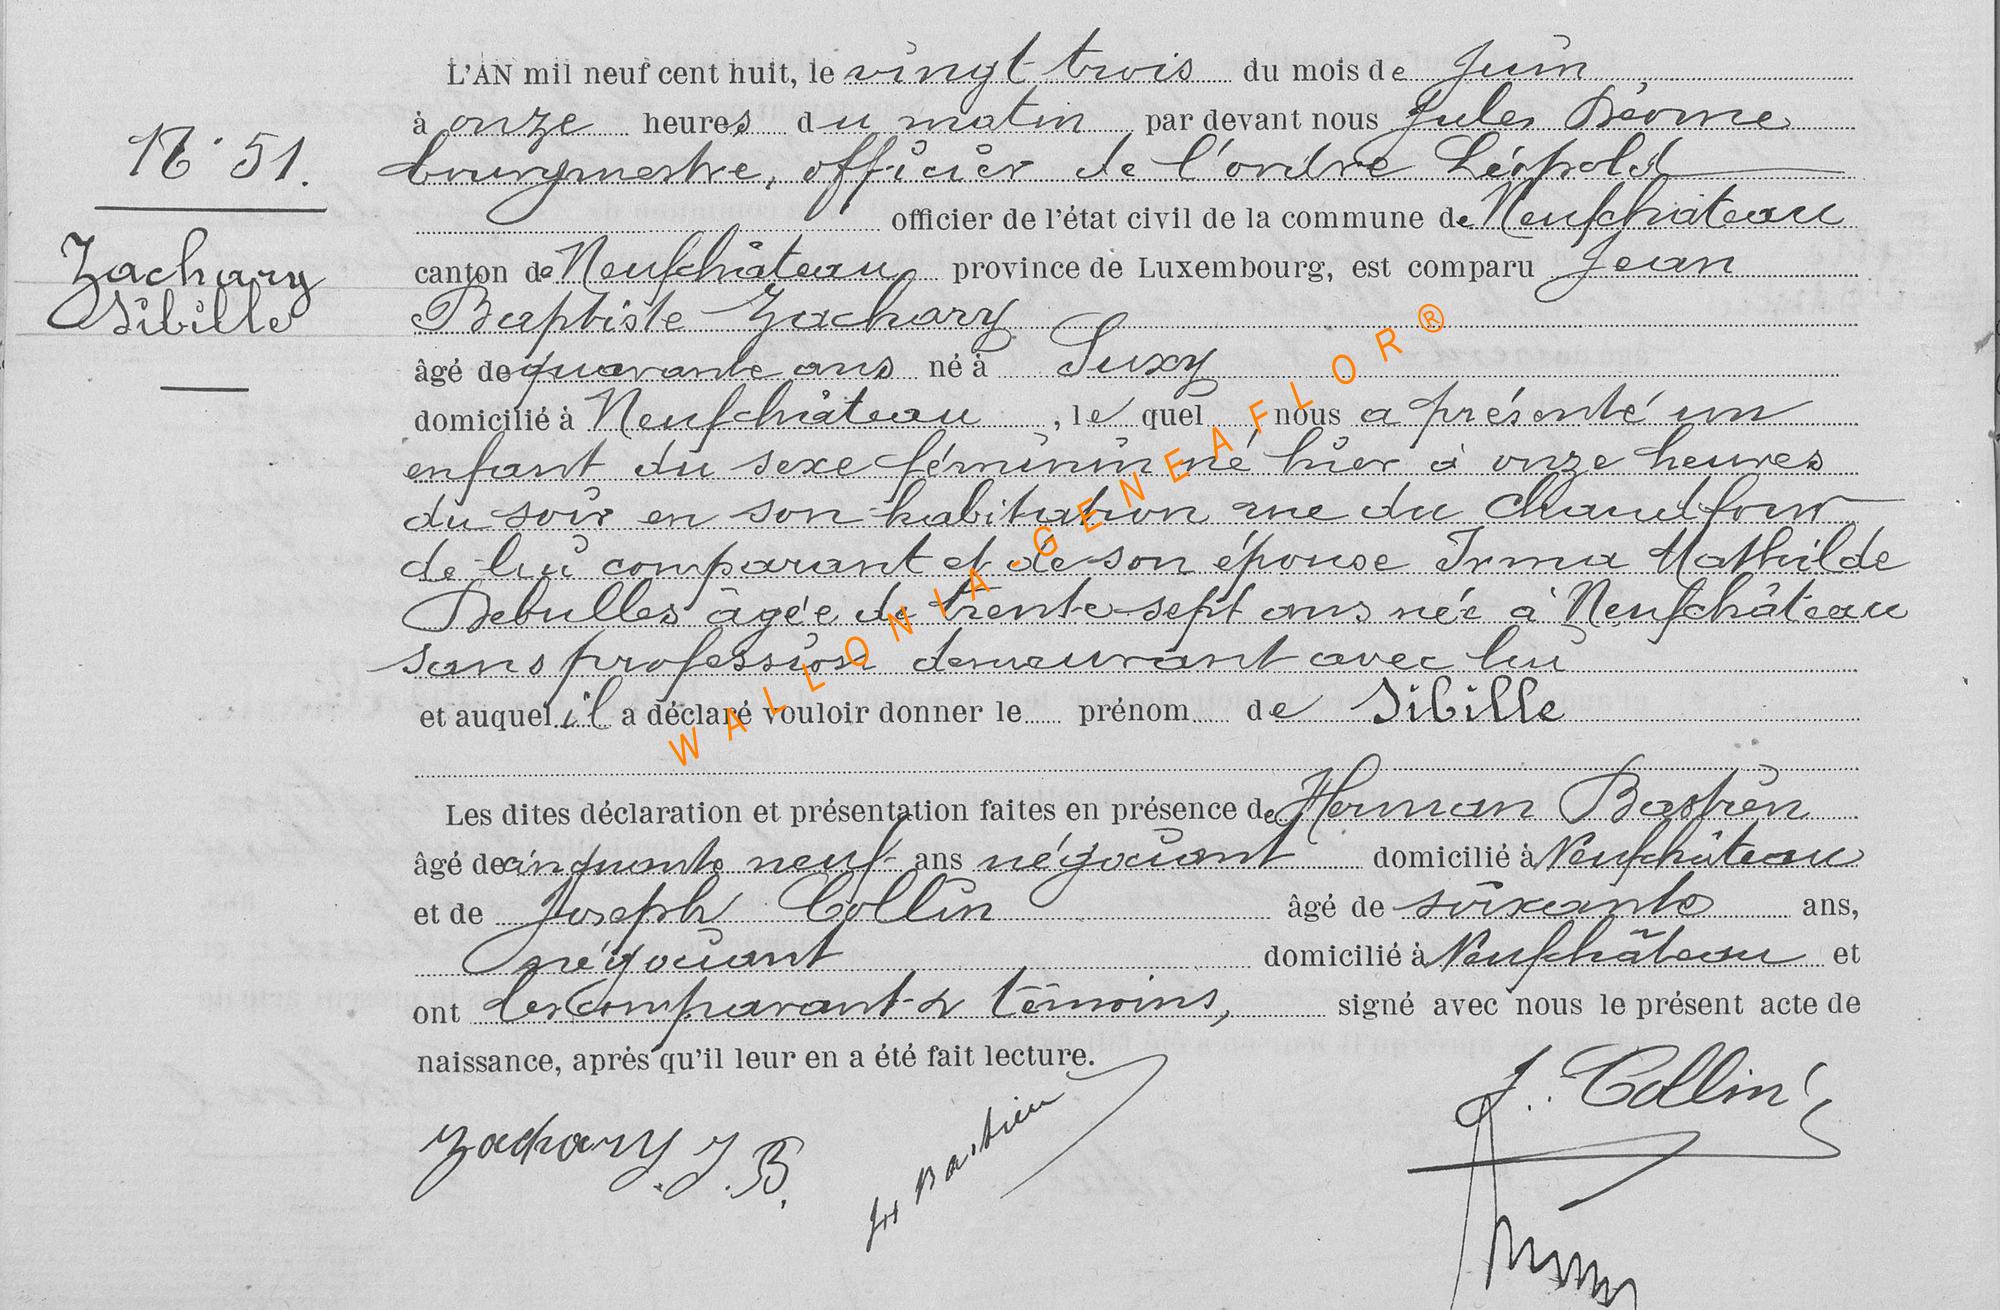 L'AN mil neuf cent huit, le vingt trois du mois de Juin
à onze heures du matin par devant nous Jules Déome
bourgmestre, officier de l'ordre Léopold
officier de l'état civil de la commune de Neufchâteau
canton de Neufchâteau province de Luxembourg, est comparu Jean
Baptiste Zachary
âgé de quarante ans né à Suxy
domicilié à Neufchâteau, le quel nous a présenté un
enfant du sexe féminin né hier à onze heures
du soir en son habitation rue du Chaudfour
de lui comparant et de son épouse Irma Mathilde
Debulles âgée de trente-sept ans née à Neufchâteau
sans profession demeurant avec lui
et auquel il a déclaré vouloir donner le prénom de Sibille
Les dites déclaration et présentation faites en présence de Herman Bastien
âgé de cinquante neuf ans négociant domicilié à Neufchâteau
et de Joseph Collin âgé de soixante ans,
négociant domicilié à Neufchâteau et
ont les comparant & témoins, signé avec nous le présent acte de
naissance, après qu'il leur en a été fait lecture.
N° 51.
Zachary
Sibille
Zachary. J. B.
H Bastien
J. Collin
WALLONIA-GENEAFLOR®